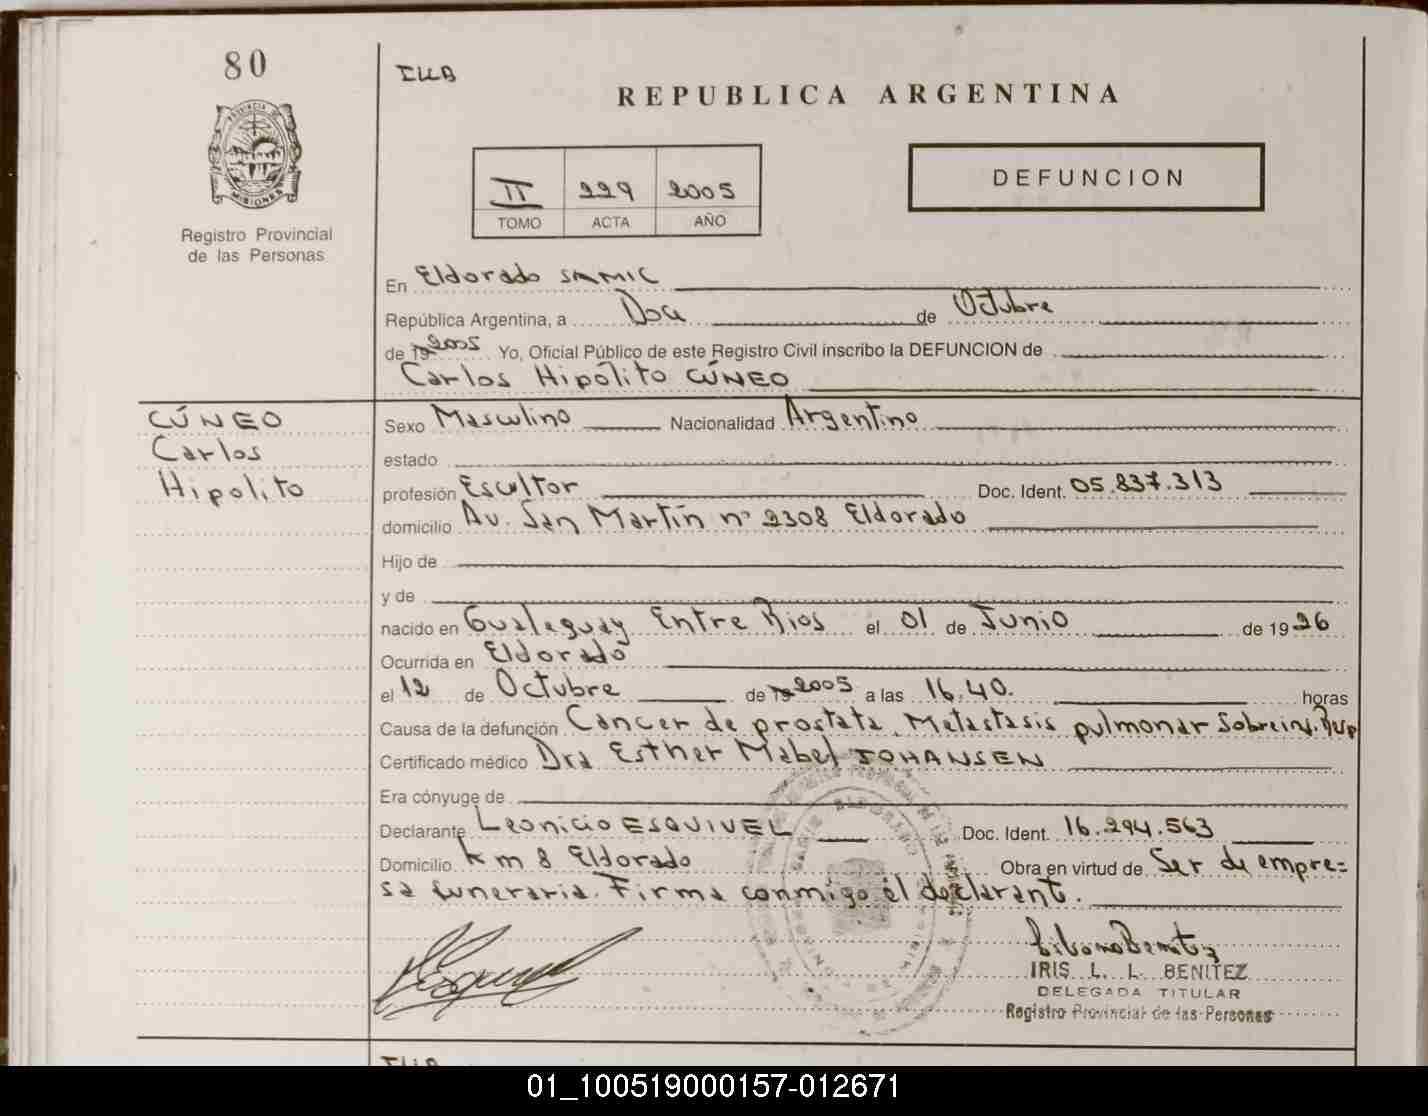 80
ILLB
REPUBLICA ARGENTINA
PROVINCIA DE
MISIONES
II 229 2005
TOMO ACTA AÑO
DEFUNCION
Registro Provincial
de las Personas
En Eldorado SAMIC
República Argentina, a Doce de Octubre
de 19 2005 Yo, Oficial Público de este Registro Civil inscribo la DEFUNCION de
Carlos Hipólito CÚNEO
CÚNEO
Carlos
Hipolito
Sexo Masculino Nacionalidad Argentino
estado
profesión Escultor Doc. Ident. 05.837.313
domicilio Av. San Martín nº 2308 Eldorado
Hijo de
y de
nacido en Gualeguay Entre Rios el 01 de Junio de 1926
Ocurrida en Eldorado
el 12 de Octubre de 19 2005 a las 16,40. horas
Causa de la defunción Cancer de prostata. Metastasis pulmonar
Certificado médico Dra Esther Mabel JOHANSEN
Era cónyuge de
Declarante Leonicio ESQUIVEL Doc. Ident. 16.294.563
Domicilio km 8 Eldorado Obra en virtud de Ser de empre=
sa funeraria. Firma conmigo el declarant.
IRIS L. L. BENITEZ
DELEGADA TITULAR
Registro Provincial de las Personas
01_100519000157-012671